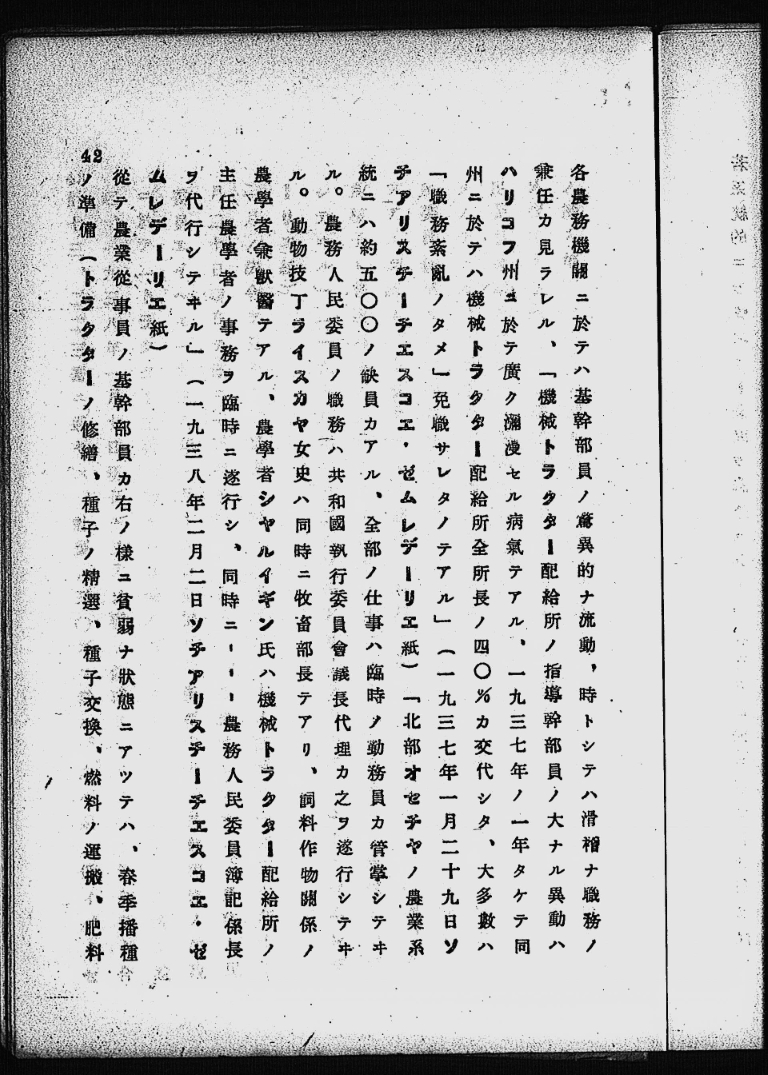 各農務機關ニ於テハ基幹部員ノ驚異的ナ流動，時トシテハ滑稽ナ職務ノ
兼任カ見ラレル、「機械トラクター配給所ノ指導幹部員ノ大ナル異動ハ
ハリコフ州ニ於テ廣ク瀰漫セル病氣テアル、一九三七年ノ一年タケテ同
州ニ於テハ機械トラクター配給所全所長ノ四〇％カ交代シタ、大多數ハ
「職務紊亂ノタメ」免職サレタノテアル」（一九三七年一月二十九日ソ
チアリスチーチエスコエ・ゼムレデーリエ紙）「北部オセチヤノ農業系
統ニハ約五〇〇ノ缺員カアル、全部ノ仕事ハ臨時ノ勤務員カ管掌シテヰ
ル。農務人民委員ノ職務ハ共和國執行委員會議長代理カ之ヲ遂行シテヰ
ル。動物技丁ライスカヤ女史ハ同時ニ牧畜部長テアリ、飼料作物關係ノ
農學者兼獸醫テアル、農學者シヤルイギン氏ハ機械トラクター配給所ノ
主任農學者ノ事務ヲ臨時ニ遂行シ、同時ニーーー農務人民委員簿記係長
ヲ代行シテヰル」（一九三八年二月二日ソチアリスチーチエスコエ・ゼ
ムレデーリエ紙）
從テ農業從事員ノ基幹部員カ右ノ樣ニ貧弱ナ狀態ニアツテハ、春季播種
ノ準備（トラクターノ修繕、種子ノ精選、種子交換、燃料ノ運搬、肥料
42